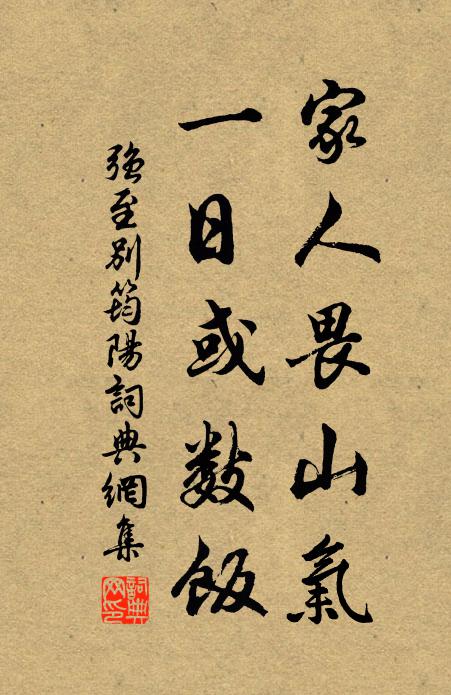 家人畏山氣
一日或數飯
強至別筠陽詞典網集
詞典网印